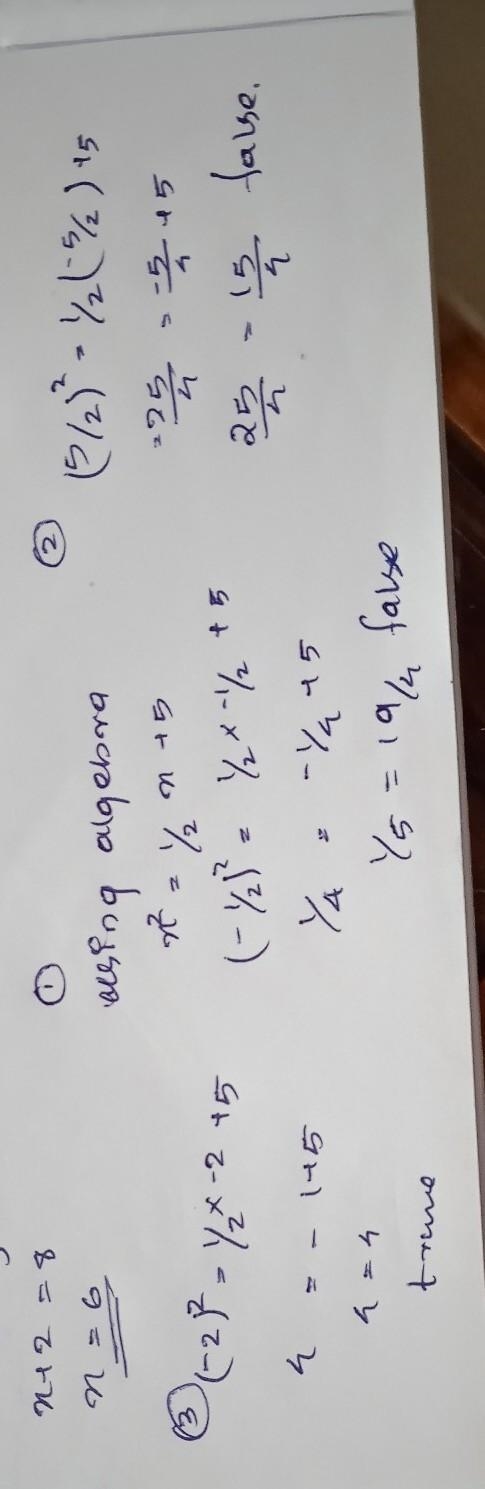 x+2 = 8
x = 6
①
using algebra
x² = 1/2 x +5
(-1/2)² = 1/2 x -1/2 + 5
1/4 = -1/4 +5
1/5 = 19/4 false
②
(5/2)² = 1/2 (-5/2) +5
=25/4 = -5/4 +5
25/4 = 15/4 false.
③ (-2)² = 1/2 x -2 +5
4 = - 1+5
4 = 4
true